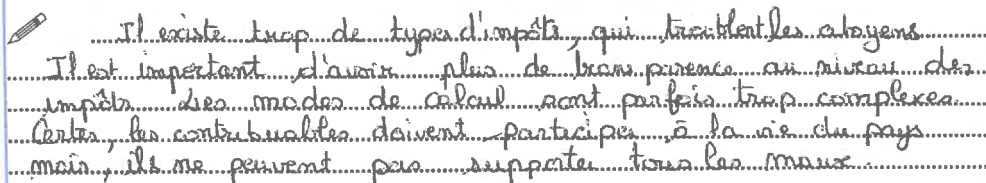 Il existe trop de types d'impôts, qui troublent les citoyens
Il est important d'avoir plus de transparence au niveau des
impôts. Les modes de calcul sont parfois trop complexes.
Certes, les contribuables doivent participer à la vie du pays
mais, ils ne peuvent pas supporter tous les maux.